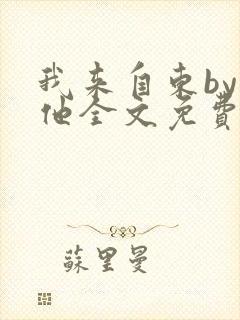 我来自东by
他全文免费
苏里曼